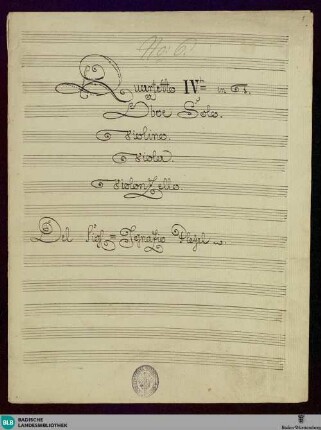 No: 6.
Quartetto IVto in F.
Oboe Solo.
Violino.
Viola.
Violonzello.
Del Sigl= Ignazio Pleyel
BLB BADISCHE
LANDESBIBLIOTHEK
Baden-Württemberg